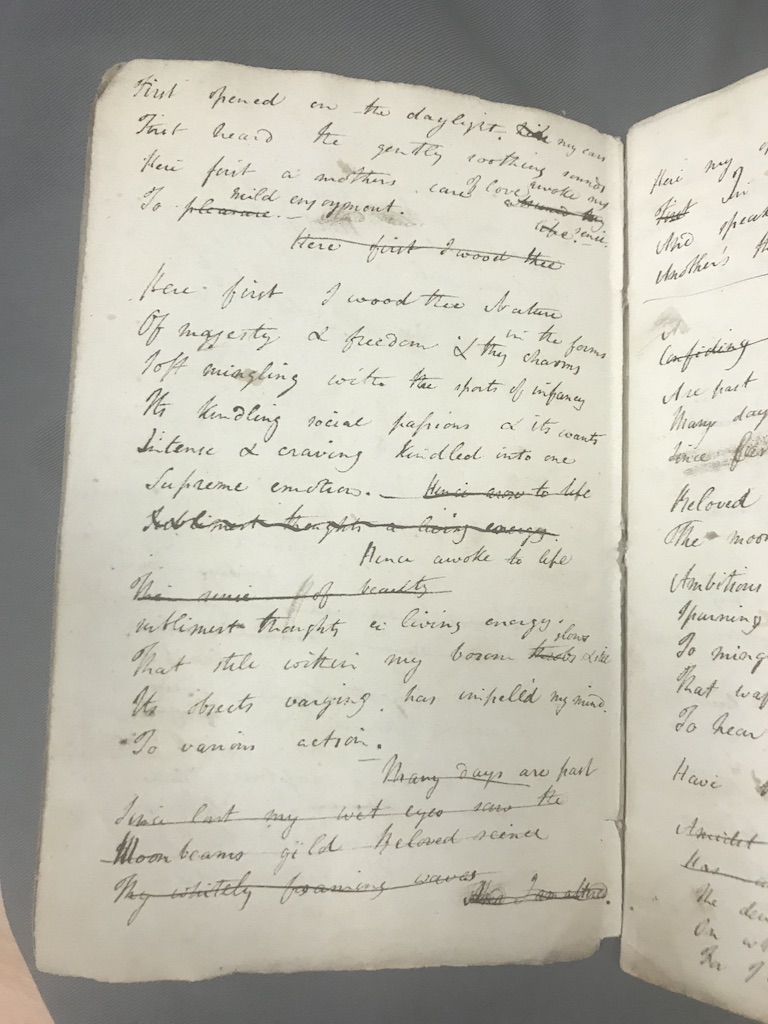 First opened on the daylight. my ears
First heard the gently soothing sounds
Here first a mothers care & love awoke my
mild enjoyment.
To pleasure. — sense. —
Here first I wood thee
Here first I wood thee Nature
in the forms
Of majesty & freedom & thy charms
Soft mingling with the sports of infancy
Its kindling social passions & its wants
Intense & craving kindled into one
Supreme emotion. — Hence arose to life
Sublimest thoughts a living energy.
Hence awoke to life
of beauty
sublimest thoughts a living energy.
glows
That still within my bosom & still
Its objects varying. has impell'd my mind.
To various action.
Many days are past
Since last my wet eyes saw the
Moonbeams gild Beloved scenes
Thy whitely foaming waves
I am altered.
Here my
First In
And speak
Another's
Confiding
Are past
Many day
Since
Beloved
The moon
Ambitious
Spurning
To ming
That wa
To hear
Have
Amidst
Has
The
On
For